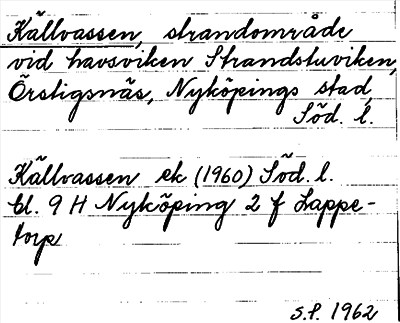 Källvassen, strandområde
vid havsviken Strandstuviken,
Örstigsnäs, Nyköpings stad,
Söd. l.
Källvassen ek (1960) Söd. l.
bl. 9 H Nyköping 2 f Lappe-
torp
S.P. 1962